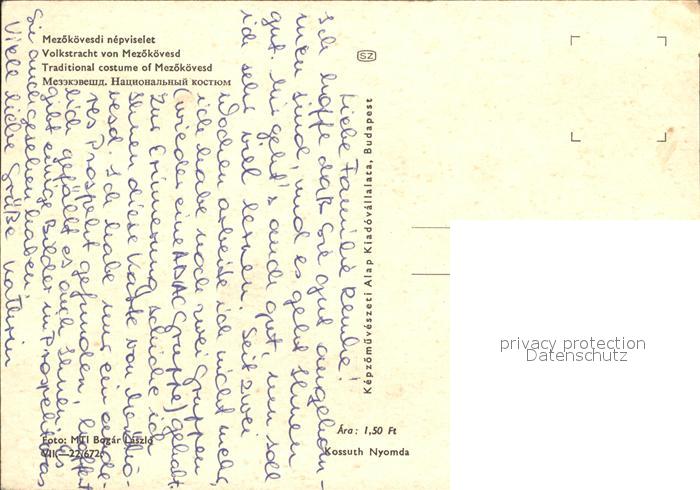 Mezőkövesdi népviselet
Volkstracht von Mezőkövesd
Traditional costume of Mezőkövesd
Мезэкэвешд. Национальный костюм
SZ
Képzőművészeti Alap Kiadóvállalata, Budapest
Liebe Familie
Ich hoffe daß Sie gut angekom-
men sind, und es geht Ihnen
gut. Mir geht's auch gut, nun soll
ich sehr viel lernen. Seit zwei
Wochen arbeite ich nicht mehr,
ich habe noch zwei Gruppen
(wieder eine ADAC Gruppe) gehabt.
Zur Erinnerung schicke ich
Ihnen diese Karte von Mezőkö-
vesd. Ich habe nur ein ande-
res Prospekt gefunden, hoffent-
lich gefällt es auch Ihnen. Es
gibt einige Bilder im Prospekt was
Sie auch gesehen haben.
Viele liebe Grüße Kathrin
Foto: MTI Bogár László
VIII—22/672
Ára: 1,50 Ft
Kossuth Nyomda
privacy protection
Datenschutz